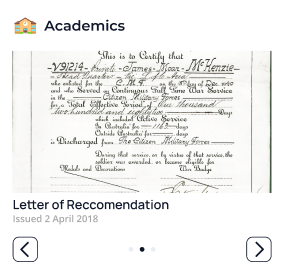 Academics
This is to Certify that
V91214 - Private - James - Moor - McKenzie -
who enlisted for the C.M.F. on the
and who Served on Continuous Full Time War Service
in the Citizen Military Forces
for a Total Effective Period of One thousand
two hundred and Days
which included Active Service
In Australia for days
Outside Australia for days
is Discharged from The Citizen Military Forces
During that service, or by virtue of that service, the
soldier was awarded, or became eligible for
Medals and Decorations War Badge
Letter of Reccomendation
Issued 2 April 2018